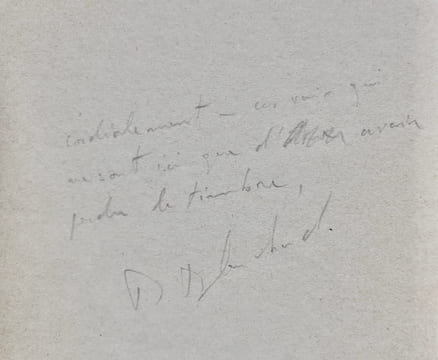 cordialement – ces voix qui
ne sont ici que d' avoir
perdu le timbre,
D Blanchard.